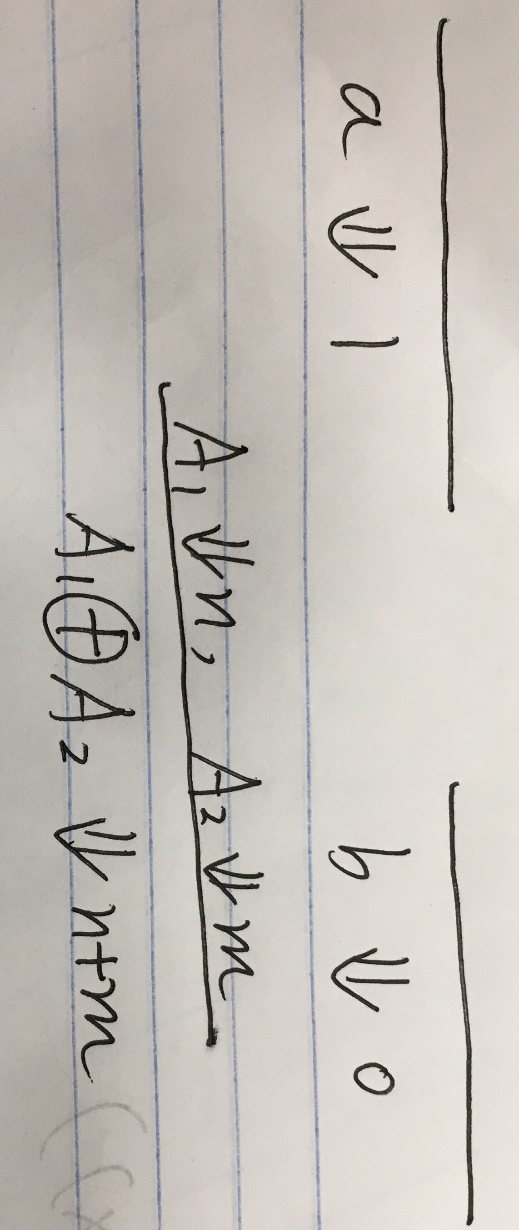 a ⇓ 1 b ⇓ 0
A₁ ⇓ n, A₂ ⇓ m
A₁ ⊕ A₂ ⇓ n+m